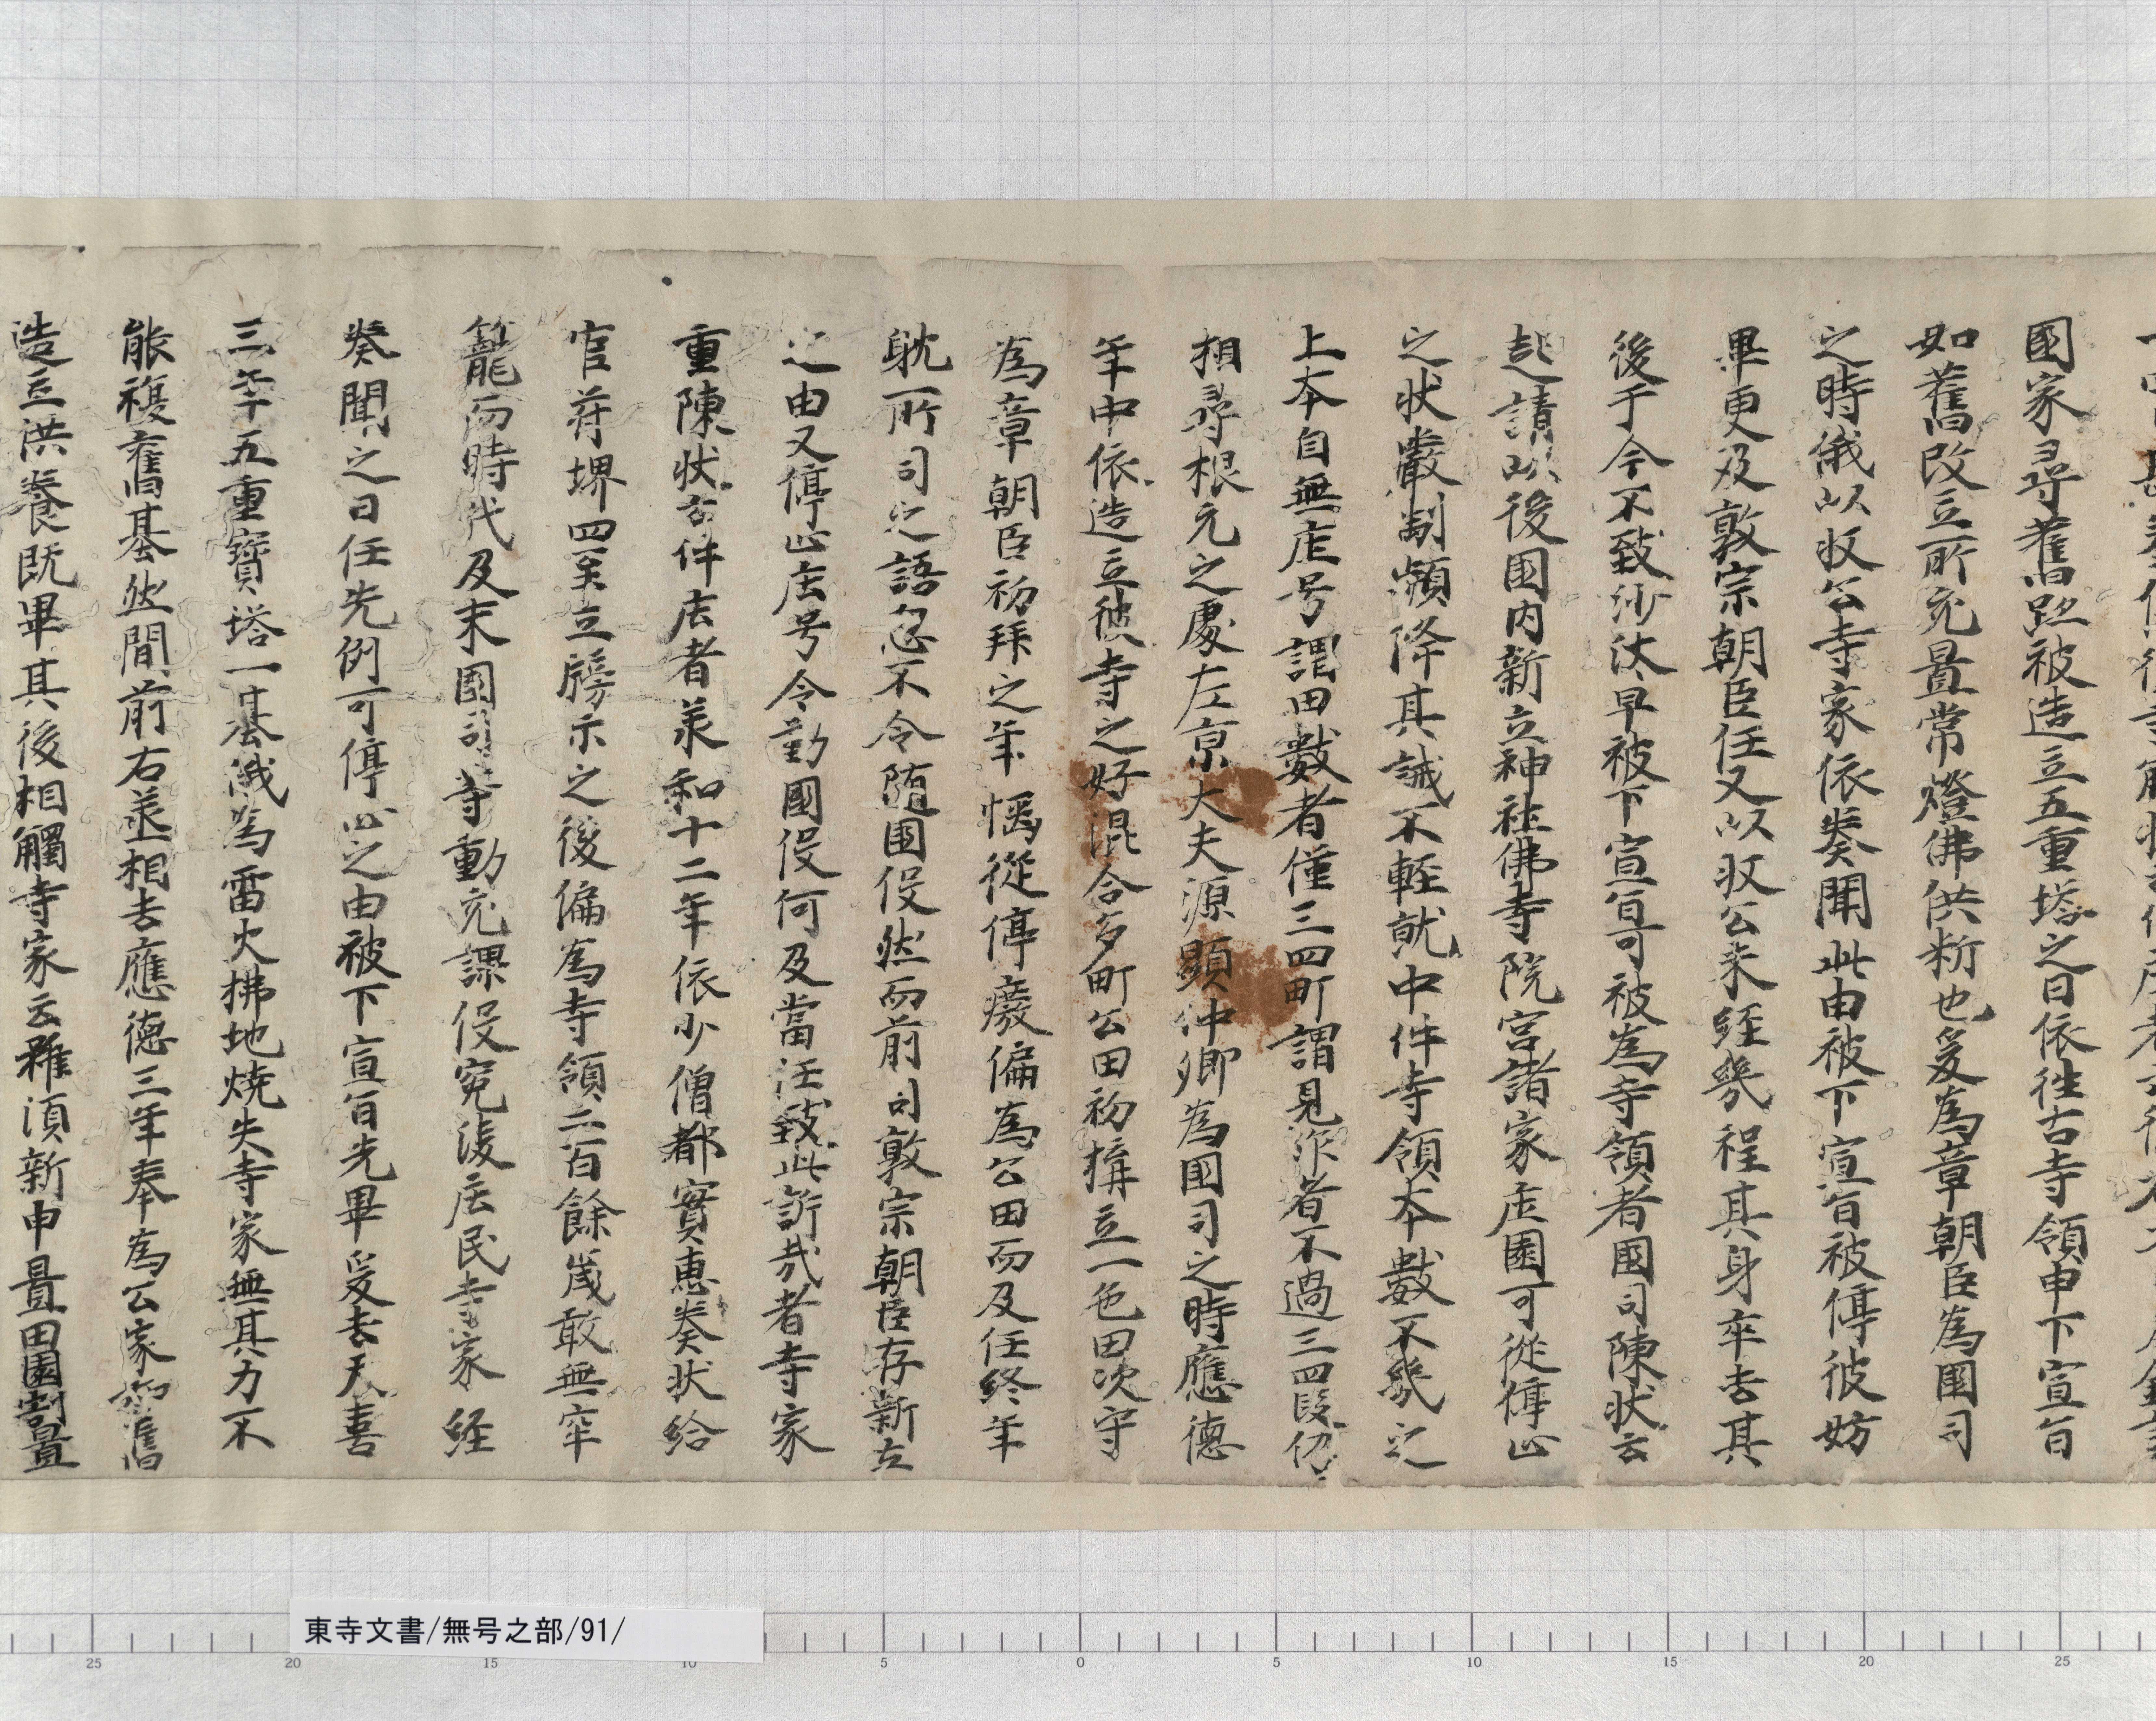 國家尋舊跡被造立五重塔之日依往古寺領申下宣旨
如舊改立所充置常燈佛供析也爰為章朝臣為國司
之時俄以収公寺家依奏聞此由被下宣旨被停彼妨
畢更及敦宗朝臣任又以収公来経幾程其身卒去其
後于今不致沙汰早被下宣旨可被為寺領者國司陳状云
起請以後國内新立神社佛寺院宮諸家庄園可從停止
之状嚴制頻降其誡不軽就中件寺領本數不幾之
上本自無庄号謂田數者僅三四町謂見作者不過三四段仍
相尋根元之處左京大夫源顯仲卿為國司之時應德
年中依造立彼寺之好混合多町公田初構立一色田次守
為章朝臣初拜之年慥從停癈偏為公田而及任終年
躭所司之語忽不令随國役然而前司敦宗朝臣存新立
之由又停止庄号令勤國役何及當任致此訴哉者寺家
重陳状云件庄者羕和十二年依少僧都實惠奏状給
官苻堺四至立牓示之後偏為寺領二百餘歳敢無牢
籠而時代及末國司等動充課役寃凌庄民寺家経
奏聞之日任先例可停止之由被下宣旨先畢爰去天喜
三年五重寳塔一基俄為雷火拂地焼失寺家無其力不
能複舊基然間前右丞相去應德三年奉為公家如舊
造立供養既畢其後相觸寺家云雖須新申置田園割置
東寺文書/無号之部/91/
25 20 15 10 5 0 5 10 15 20 25